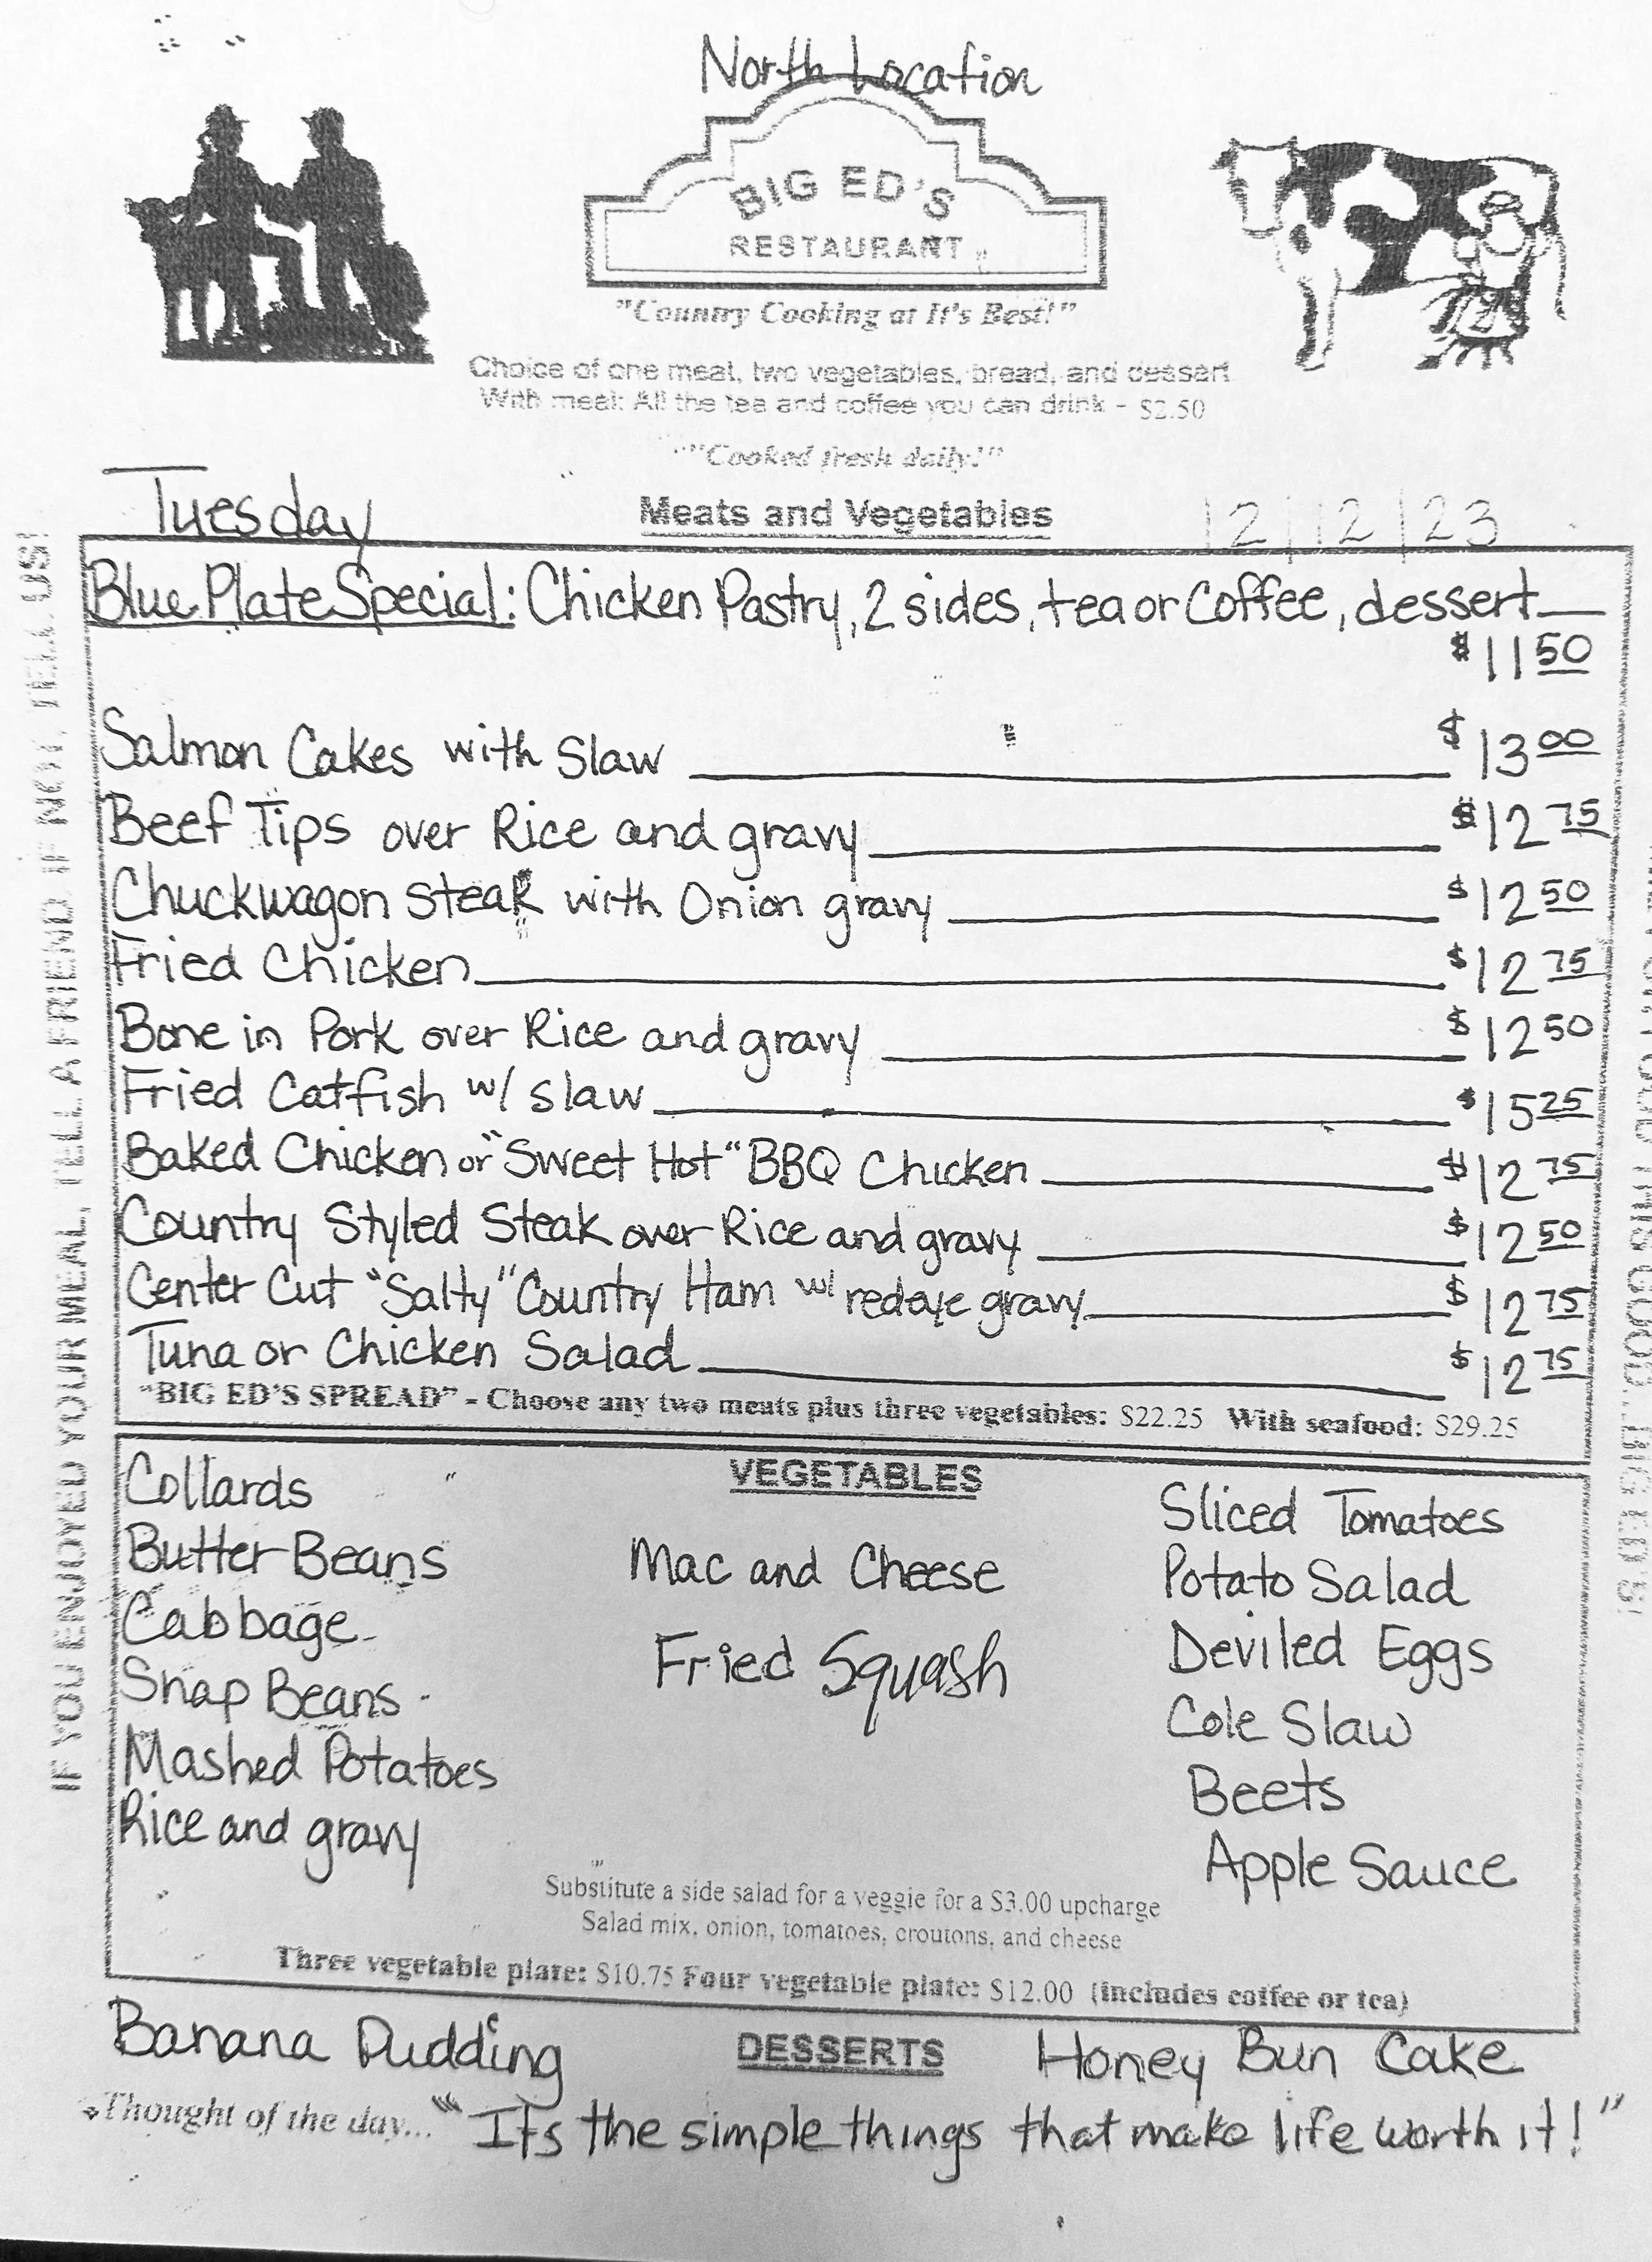 North Location
BIG ED'S
RESTAURANT
"Country Cooking at It's Best!"
Choice of one meat, two vegetables, bread, and dessert
With meal: All the tea and coffee you can drink - $2.50
"Cooked fresh daily!"
Tuesday
Meats and Vegetables
12/12/23
Blue Plate Special: Chicken Pastry, 2 sides, tea or Coffee, dessert
$11 50
Salmon Cakes with Slaw $13 00
Beef Tips over Rice and gravy $12 75
Chuckwagon Steak with Onion gravy $12 50
Fried Chicken $12 75
Bone in Pork over Rice and gravy $12 50
Fried Catfish w/ slaw $15 25
Baked Chicken or "Sweet Hot" BBQ Chicken $12 75
Country Styled Steak over Rice and gravy $12 50
Center Cut "Salty" Country Ham w/ redeye gravy $12 75
Tuna or Chicken Salad $12 75
"BIG ED'S SPREAD" - Choose any two meats plus three vegetables: $22.25 With seafood: $29.25
VEGETABLES
Collards
Butter Beans
Cabbage
Snap Beans
Mashed Potatoes
Rice and gravy
Mac and Cheese
Fried Squash
Sliced Tomatoes
Potato Salad
Deviled Eggs
Cole Slaw
Beets
Apple Sauce
Substitute a side salad for a veggie for a $3.00 upcharge
Salad mix, onion, tomatoes, croutons, and cheese
Three vegetable plate: $10.75 Four vegetable plate: $12.00 (includes coffee or tea)
Banana Pudding
DESSERTS
Honey Bun Cake
Thought of the day... "Its the simple things that make life worth it!"
IF YOU ENJOYED YOUR MEAL, TELL A FRIEND IF NOT, TELL US!
THIS GOOD...BIG ED'S!